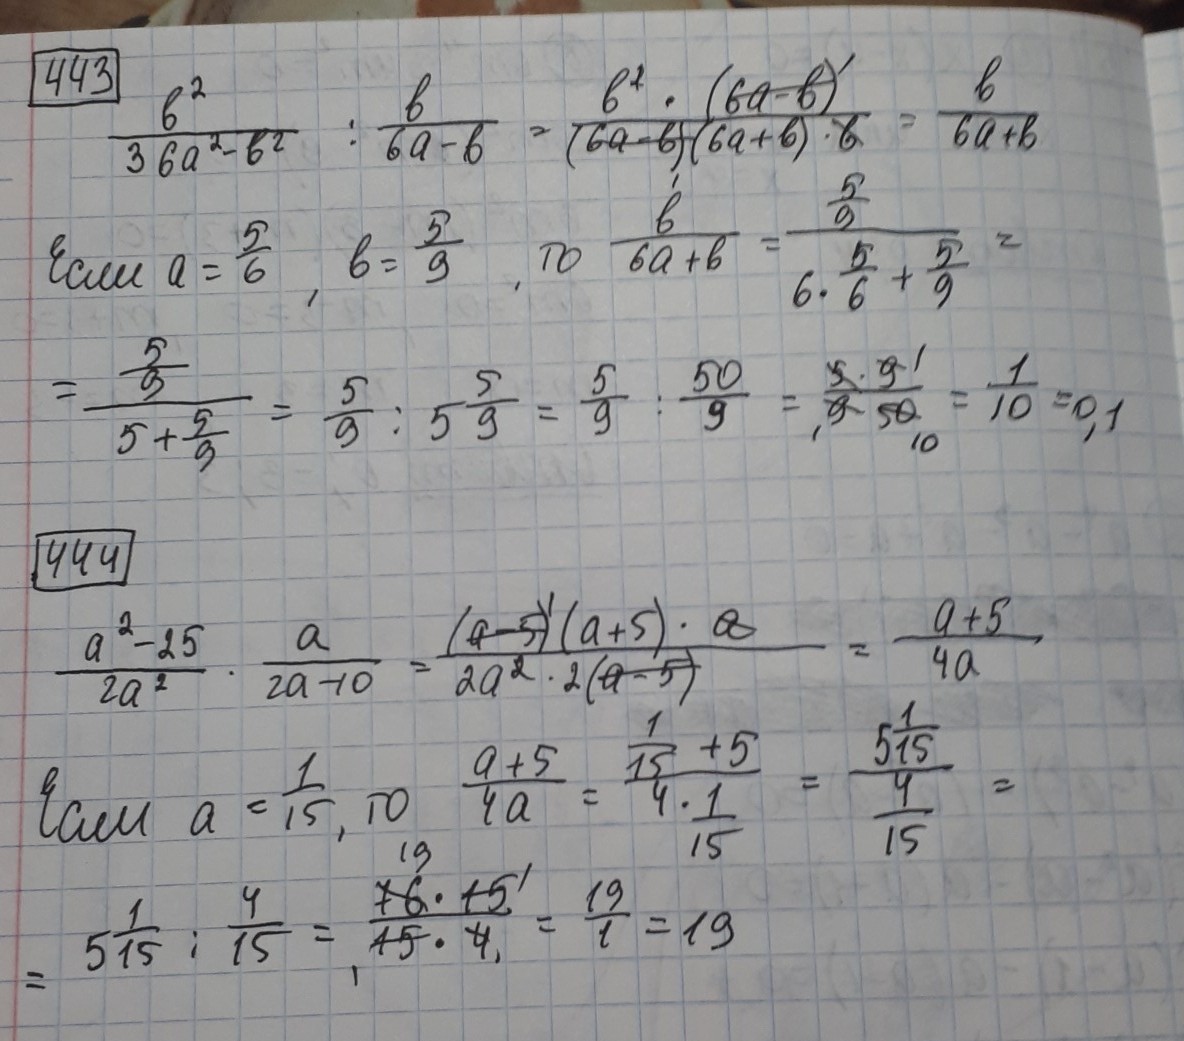 443
b²/(36a²-b²) : b/(6a-b) = (b² · (6a-b)¹)/((6a-b)(6a+b) · b) = b/(6a+b)
Если a = 5/6, b = 5/9, то b/(6a+b) = (5/9)/(6 · 5/6 + 5/9) =
= (5/9)/(5 + 5/9) = 5/9 : 5 5/9 = 5/9 : 50/9 = (5 · 9 1)/(1 9 · 50 10) = 1/10 = 0,1
444
(a²-25)/(2a²) · a/(2a-10) = ((a-5)¹(a+5) · a)/(2a² · 2(a-5)) = (a+5)/(4a)
Если a = 1/15, то (a+5)/(4a) = (1/15 + 5)/(4 · 1/15) = (5 1/15)/(4/15) =
= 5 1/15 : 4/15 = (19 76 · 15 1)/(1 15 · 4 1) = 19/1 = 19